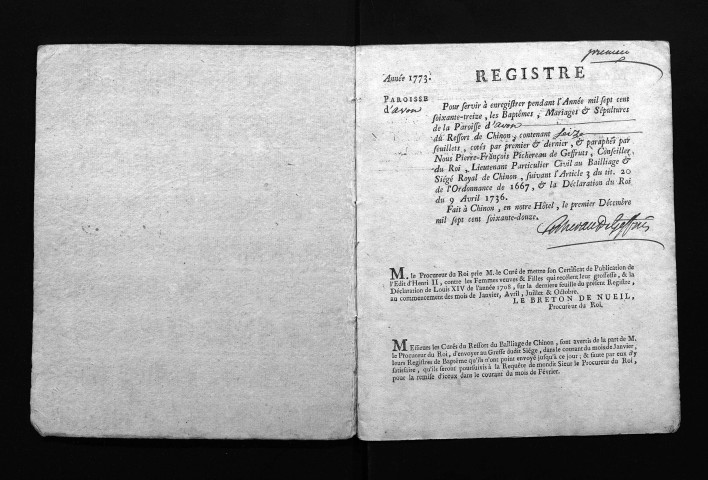 premier
Année 1773.
REGISTRE
PAROISSE
d'avon
Pour servir à enregistrer pendant l'Année mil sept cent
soixante-treize, les Baptêmes, Mariages & Sépultures
de la Paroisse d'avon
du Ressort de Chinon, contenant seize
feuillets, cotés par premier & dernier, & paraphés par
Nous Pierre-François Pichereau de Geffruts, Conseiller
du Roi, Lieutenant Particulier Civil au Bailliage &
Siégé Royal de Chinon, suivant l'Article 3 du tit. 20
de l'Ordonnance de 1667, & la Déclaration du Roi
du 9 Avril 1736.
Fait à Chinon, en notre Hôtel, le premier Décembre
mil sept cent soixante-douze.
M. le Procureur du Roi prie M. le Curé de mettre son Certificat de Publication de
l'Edit d'Henri II, contre les Femmes veuves & Filles qui recelent leur grossesse, & la
Déclaration de Louis XIV de l'année 1708, sur la derniere feuille du présent Registre,
au commencement des mois de Janvier, Avril, Juillet & Octobre.
LE BRETON DE NUEIL,
Procureur du Roi.
MEssieurs les Curés du Ressort du Bailliage de Chinon, sont avertis de la part de M.
le Procureur du Roi, d'envoyer au Greffe dudit Siége, dans le courant du mois de Janvier,
leurs Registres de Baptême qu'ils n'ont point envoyé jusqu'à ce jour; & faute par eux d'y
satisfaire, qu'ils seront poursuivis à la Requête de mondit Sieur le Procureur du Roi,
pour la remise d'iceux dans le courant du mois de Février.